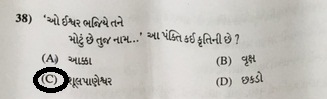 38) 'ઓ ઈશ્વર ભજિયે તને
મોટું છે તુજ નામ...' આ પંક્તિ કઈ કૃતિની છે ?
(A) આક્કા (B) વૃક્ષ
(C) શૂલપાણેશ્વર (D) છકડો